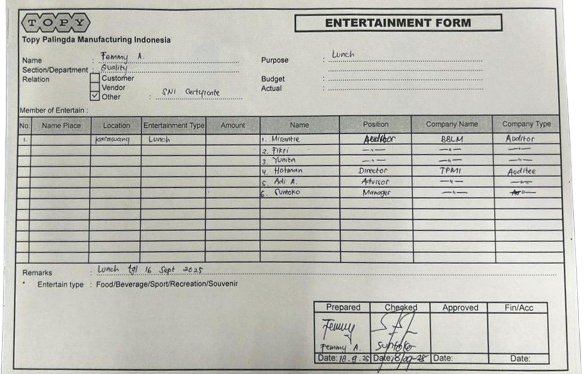 TOPY
ENTERTAINMENT FORM
Topy Palingda Manufacturing Indonesia
Name : Femmy A.
Purpose : Lunch
Section/Department : Quality
Relation
Customer
Vendor
Other : SNI Certificate
Budget :
Actual :
Member of Entertain :
No. Name Place Location Entertainment Type Amount Name Position Company Name Company Type
1. Lunch 1. Auditor BBLM Auditor
2. Fikri —"— —"— —"—
3. Yunita —"— —"— —"—
4. Hotman Director TPMI Auditee
5. Adi A. Advisor —"— —"—
6. Suntoko Manager —"— —"—
Remarks : Lunch tgl 16 Sept 2025
* Entertain type : Food/Beverage/Sport/Recreation/Souvenir
Prepared Checked Approved Fin/Acc
Femmy
Femmy A. Suntoko
Date: 18.9.25 Date: Date: Date: